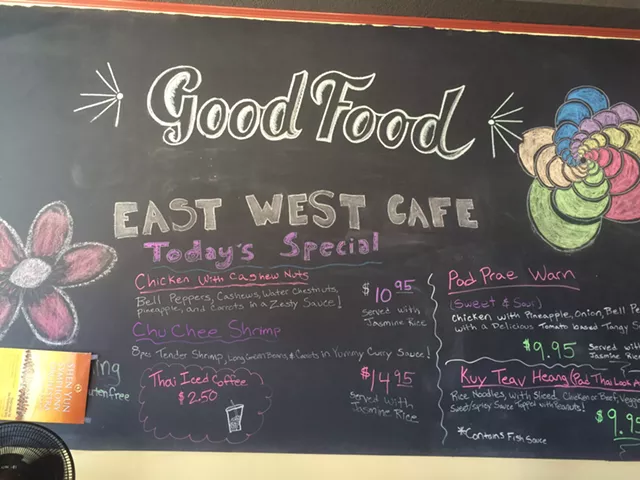 Good Food
EAST WEST CAFE
Today's Special
Chicken With Cashew Nuts
Bell Peppers, Cashews, Water Chestnuts,
pineapple, and Carrots in a Zesty Sauce!
$10.95
served with
Jasmine Rice
Chu Chee Shrimp
8pcs Tender Shrimp, Long Green Beans, & Carrots in Yummy Curry Sauce!
$14.95
served with
Jasmine Rice
Thai Iced Coffee
$2.50
Pad Prae Warn
(Sweet & Sour)
Chicken with Pineapple, Onion, Bell Pe
with a Delicious Tomato based Tangy
$9.95
served with
Jasmine Rice
Kuy Teav Heang (Pad Thai Look
Rice Noodles, with Sliced Chicken or Beef,
Sweet/spicy Sauce Topped with Peanuts!
$9.95
*Contains Fish Sauce
SHEN YUN
ing
uten free